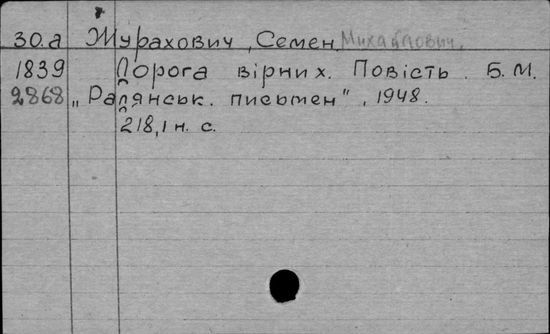 30.а Журахович, Семен Михайлович.
1839 Дорога вірних. Повість. Б.М.
2868 „Радянськ. письмен", 1948.
218,1 н. с.